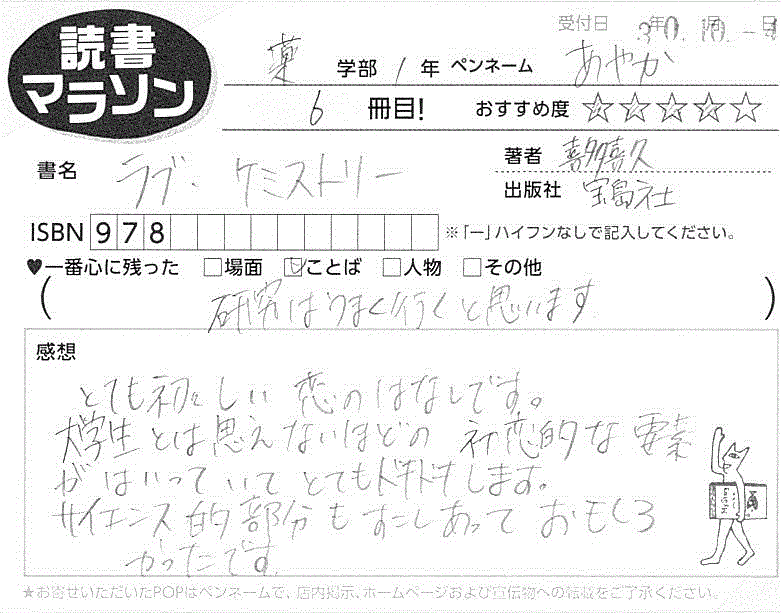 読書
マラソン
受付日 30年10月-4日
薬 学部 1 年 ペンネーム あやか
6 冊目! おすすめ度 ☆☆☆☆☆
書名 ラブ・ケミストリー
著者 喜多喜久
出版社 宝島社
ISBN 978 ※「ー」ハイフンなしで記入してください。
♥一番心に残った □場面 ☑ことば □人物 □その他
(研究はうまく行くと思います)
感想
とても初々しい恋のはなしです。
大学生とは思えないほどの初恋的な要素
がはいっていてとてもドキドキします。
サイエンス的部分もすこしあっておもしろ
かったです。
★お寄せいただいたPOPはペンネームで、店内掲示、ホームページおよび宣伝物への転載をご了承ください。